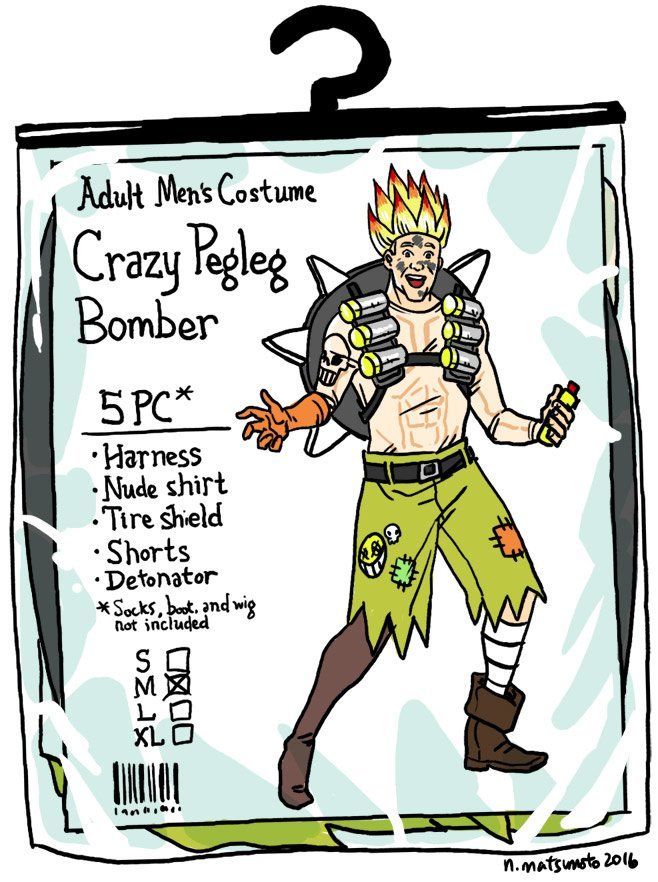 Adult Men's Costume
Crazy Pegleg
Bomber
5 PC*
· Harness
· Nude shirt
· Tire shield
· Shorts
· Detonator
* Socks, boot, and wig
not included
S
M
L
XL
n.matsumoto 2016